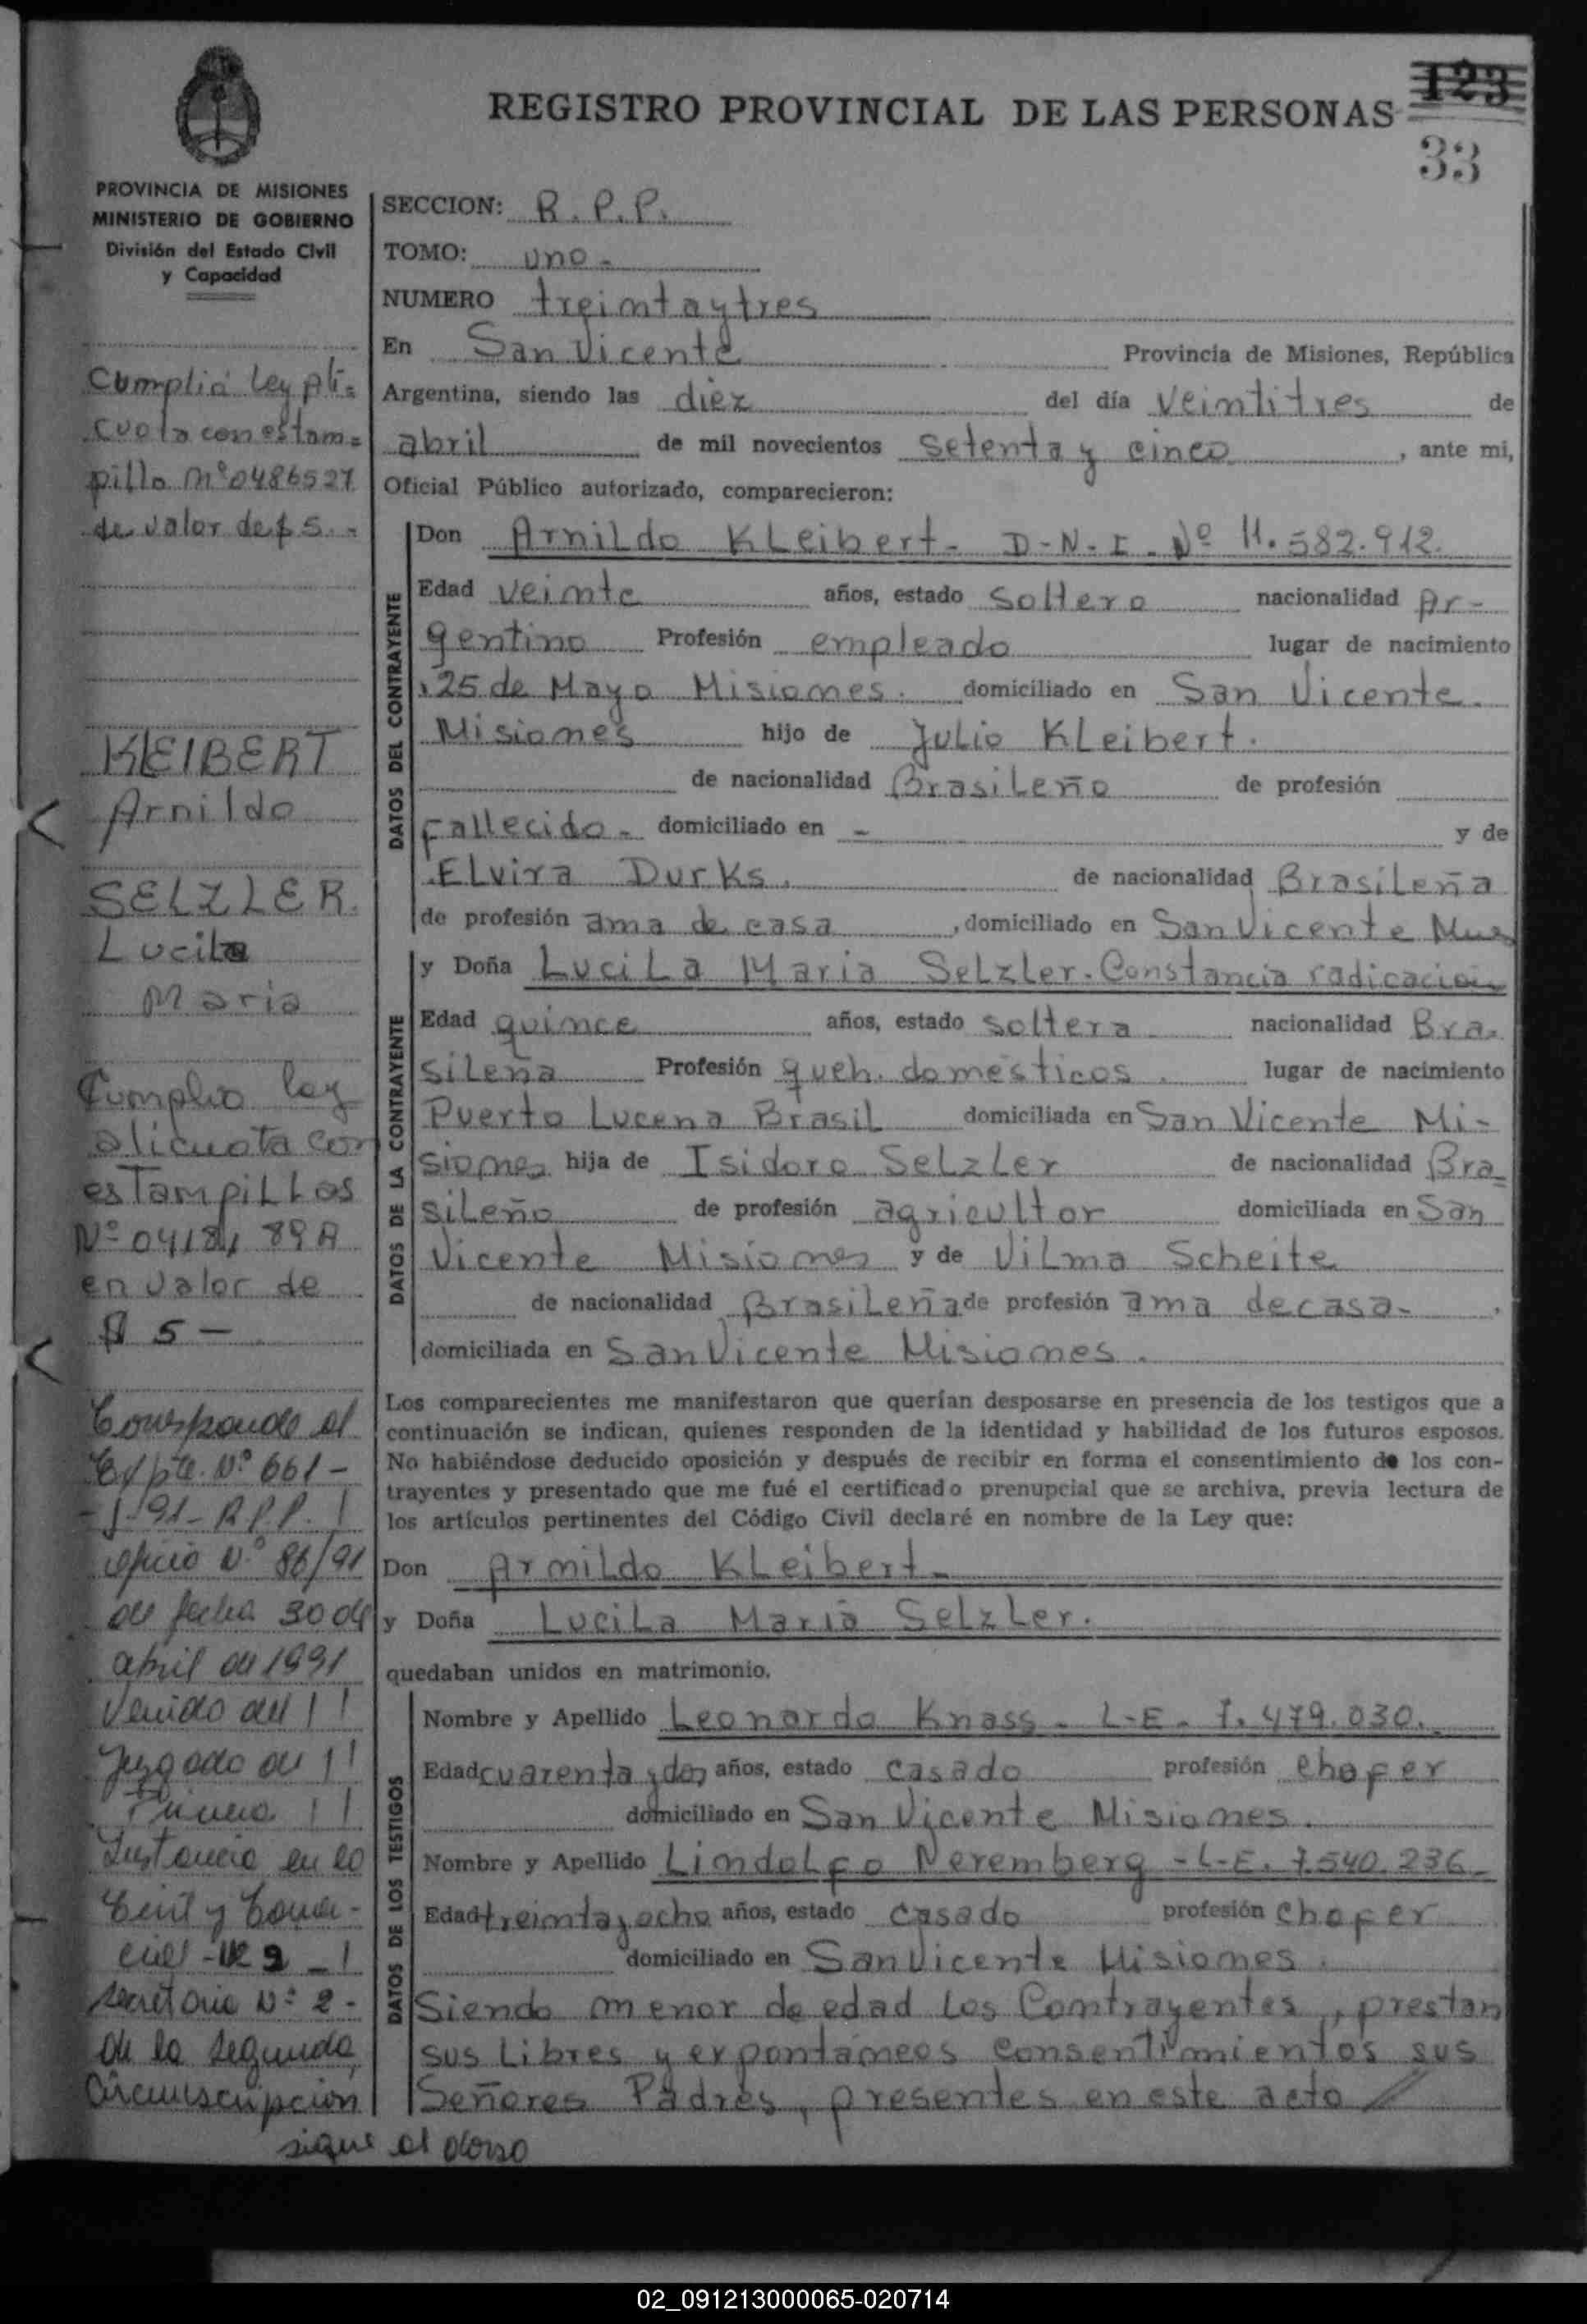 REGISTRO PROVINCIAL DE LAS PERSONAS
123
33
PROVINCIA DE MISIONES
MINISTERIO DE GOBIERNO
División del Estado Civil
y Capacidad
Cumplió Ley Alí=
cuota con estam=
pilla nº 0486527
de valor de $ 5.-
KLEIBERT
Arnildo
SELZLER.
Lucila
Maria
Cumplio ley
alicuota con
esTampiLLas
Nº 0418
en valor de
$ 5 —
Corresponde al
Expte. Nº 661-
-J-91-R.P.P. !
oficio Nº 86/91
de fecha 30 de
abril de 1991
Venido del !!
Juzgado de !!
Primera !!
Instancia en lo
Civil y Comer-
cial - Nº 2 - !
secretaria Nº 2 -
de la segunda
Circunscripcion
sigue al dorso
SECCION: R. P. P.
TOMO: uno-
NUMERO treinta y tres
En San Vicente Provincia de Misiones, República
Argentina, siendo las diez del día veintitres de
abril de mil novecientos setenta y cinco, ante mi,
Oficial Público autorizado, comparecieron:
DATOS DEL CONTRAYENTE
Don Arnildo Kleibert- D-N-I. Nº 11.582.912.
Edad veinte años, estado soltero nacionalidad Ar-
gentino Profesión empleado lugar de nacimiento
25 de Mayo Misiones. domiciliado en San Vicente.
Misiones hijo de Julio Kleibert.
de nacionalidad Brasileño de profesión
fallecido- domiciliado en - y de
Elvira Durks. de nacionalidad Brasileña
de profesión ama de casa, domiciliado en San Vicente Mnes
DATOS DE LA CONTRAYENTE
y Doña Lucila Maria Selzler. Constancia radicacion
Edad quince años, estado soltera nacionalidad Bra-
sileña Profesión queh. domésticos. lugar de nacimiento
Puerto Lucena Brasil domiciliada en San Vicente Mi-
siones hija de Isidoro Selzler de nacionalidad Bra-
sileño de profesión agricultor domiciliada en San
Vicente Misiones y de Vilma Scheite
de nacionalidad Brasileña de profesión ama de casa-.
domiciliada en San Vicente Misiones.
Los comparecientes me manifestaron que querían desposarse en presencia de los testigos que a
continuación se indican, quienes responden de la identidad y habilidad de los futuros esposos.
No habiéndose deducido oposición y después de recibir en forma el consentimiento de los con-
trayentes y presentado que me fué el certificado prenupcial que se archiva, previa lectura de
los artículos pertinentes del Código Civil declaré en nombre de la Ley que:
Don Arnildo Kleibert-
y Doña Lucila Maria Selzler.
quedaban unidos en matrimonio.
DATOS DE LOS TESTIGOS
Nombre y Apellido Leonardo Knass- L-E- 7.479.030.
Edad cuarenta y dos años, estado casado profesión chofer
domiciliado en San Vicente Misiones.
Nombre y Apellido Lindolfo Neremberg -L-E. 7.540.236-
Edad treinta y ocho años, estado casado profesión chofer
domiciliado en San Vicente Misiones.
Siendo menor de edad los Contrayentes, prestan
sus libres y expontaneos consentimientos sus
Señores Padres, presentes en este acto
02_091213000065-020714